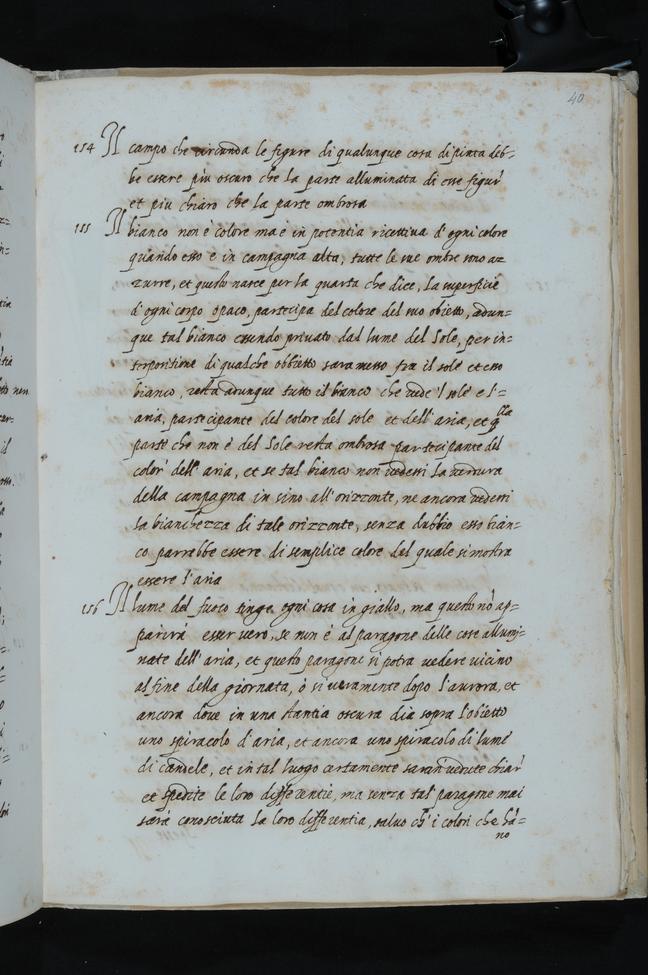 40
154 Il campo che circunda le figure di qualunque cosa dipinta deb-
be essere piu oscuro che la parte alluminata di esse figur
et piu chiaro che la parte ombrosa
155 Il bianco non è colore ma è in potentia ricettiva d'ogni colore
quando esso è in campagna alta, tutte le sue ombre sono az
zurre, et questo nasce per la quarta che dice, la superficie
d'ogni corpo opaco, partecipa del colore del suo obietto, adun=
que tal bianco essendo privato dal lume del Sole, per in=
terpositione di qualche obbietto sara messo fra il sole et esso
bianco, resta adunque tutto il bianco che vede 'l sole e l'=
aria, partecipante del colore del sole et dell'aria, et qlla
parte che non è del Sole resta ombrosa partecipante del
color' dell'aria, et se tal bianco non vedessi la verdura
della campagna in sino all'orizzonte, ne ancora vedessi
la bianchezza di tale orizzonte, senza dubbio esso bian=
co parrebbe essere di semplice colore del quale si mostra
essere l'aria
156 Il lume del fuoco tinge ogni cosa in giallo, ma questo nõ ap=
parirà esser vero, se non è al paragone delle cose allumi=
nate dell'aria, et questo paragone si potra vedere vicino
al fine della giornata, ò si veramente dopo l'aurora, et
ancora dove in una stantia oscura dia sopra l'obietto
uno spiracolo d'aria, et ancora uno spiracolo di lume
di candele, et in tal luogo certamente saran vedute chiar'
et spedite le loro differentie, ma senza tal paragone mai
sarà conosciuta la loro differentia, salvo ch' i colori che hã=
no